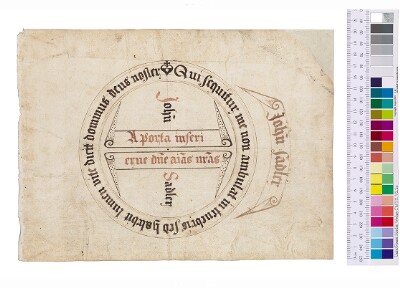 Qui sequitur me non ambulat in tenebris sed habebit lumen vite dicit dominus deus noster
John
A porta inferi
erue dñe aīas nr̄as
Sadler
John sadler